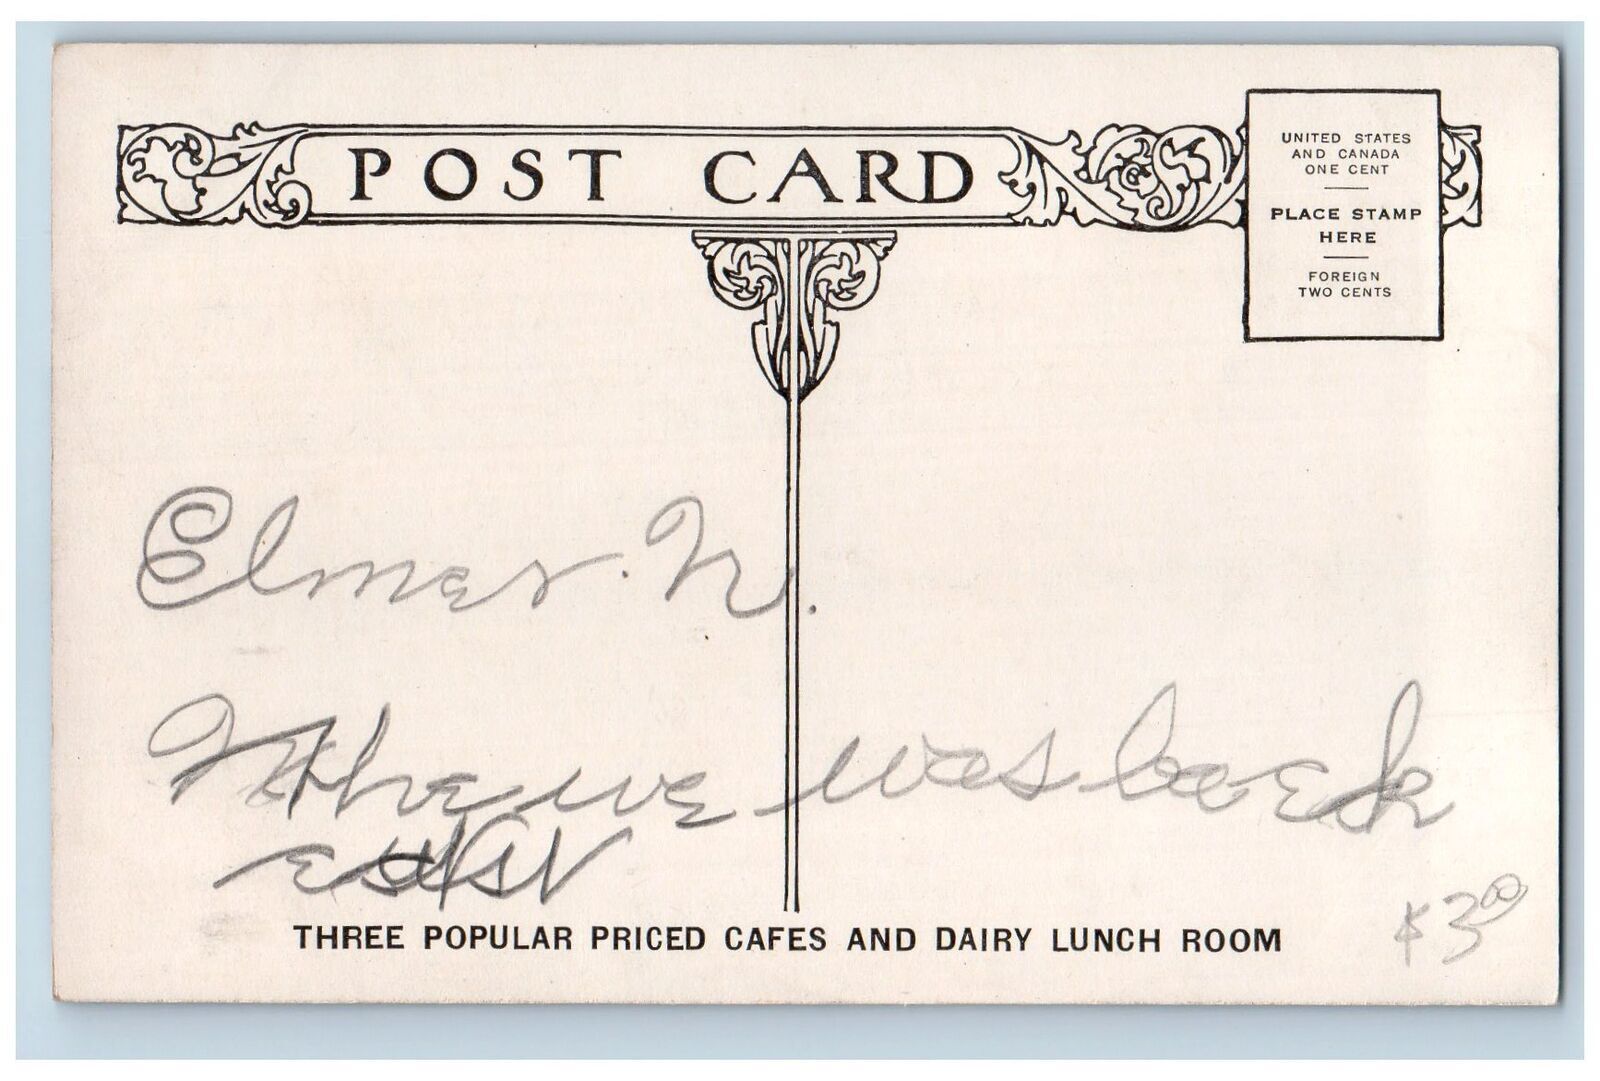 POST CARD
UNITED STATES
AND CANADA
ONE CENT
PLACE STAMP
HERE
FOREIGN
TWO CENTS
Elmer. N.
we was back
east
THREE POPULAR PRICED CAFES AND DAIRY LUNCH ROOM
$3.00